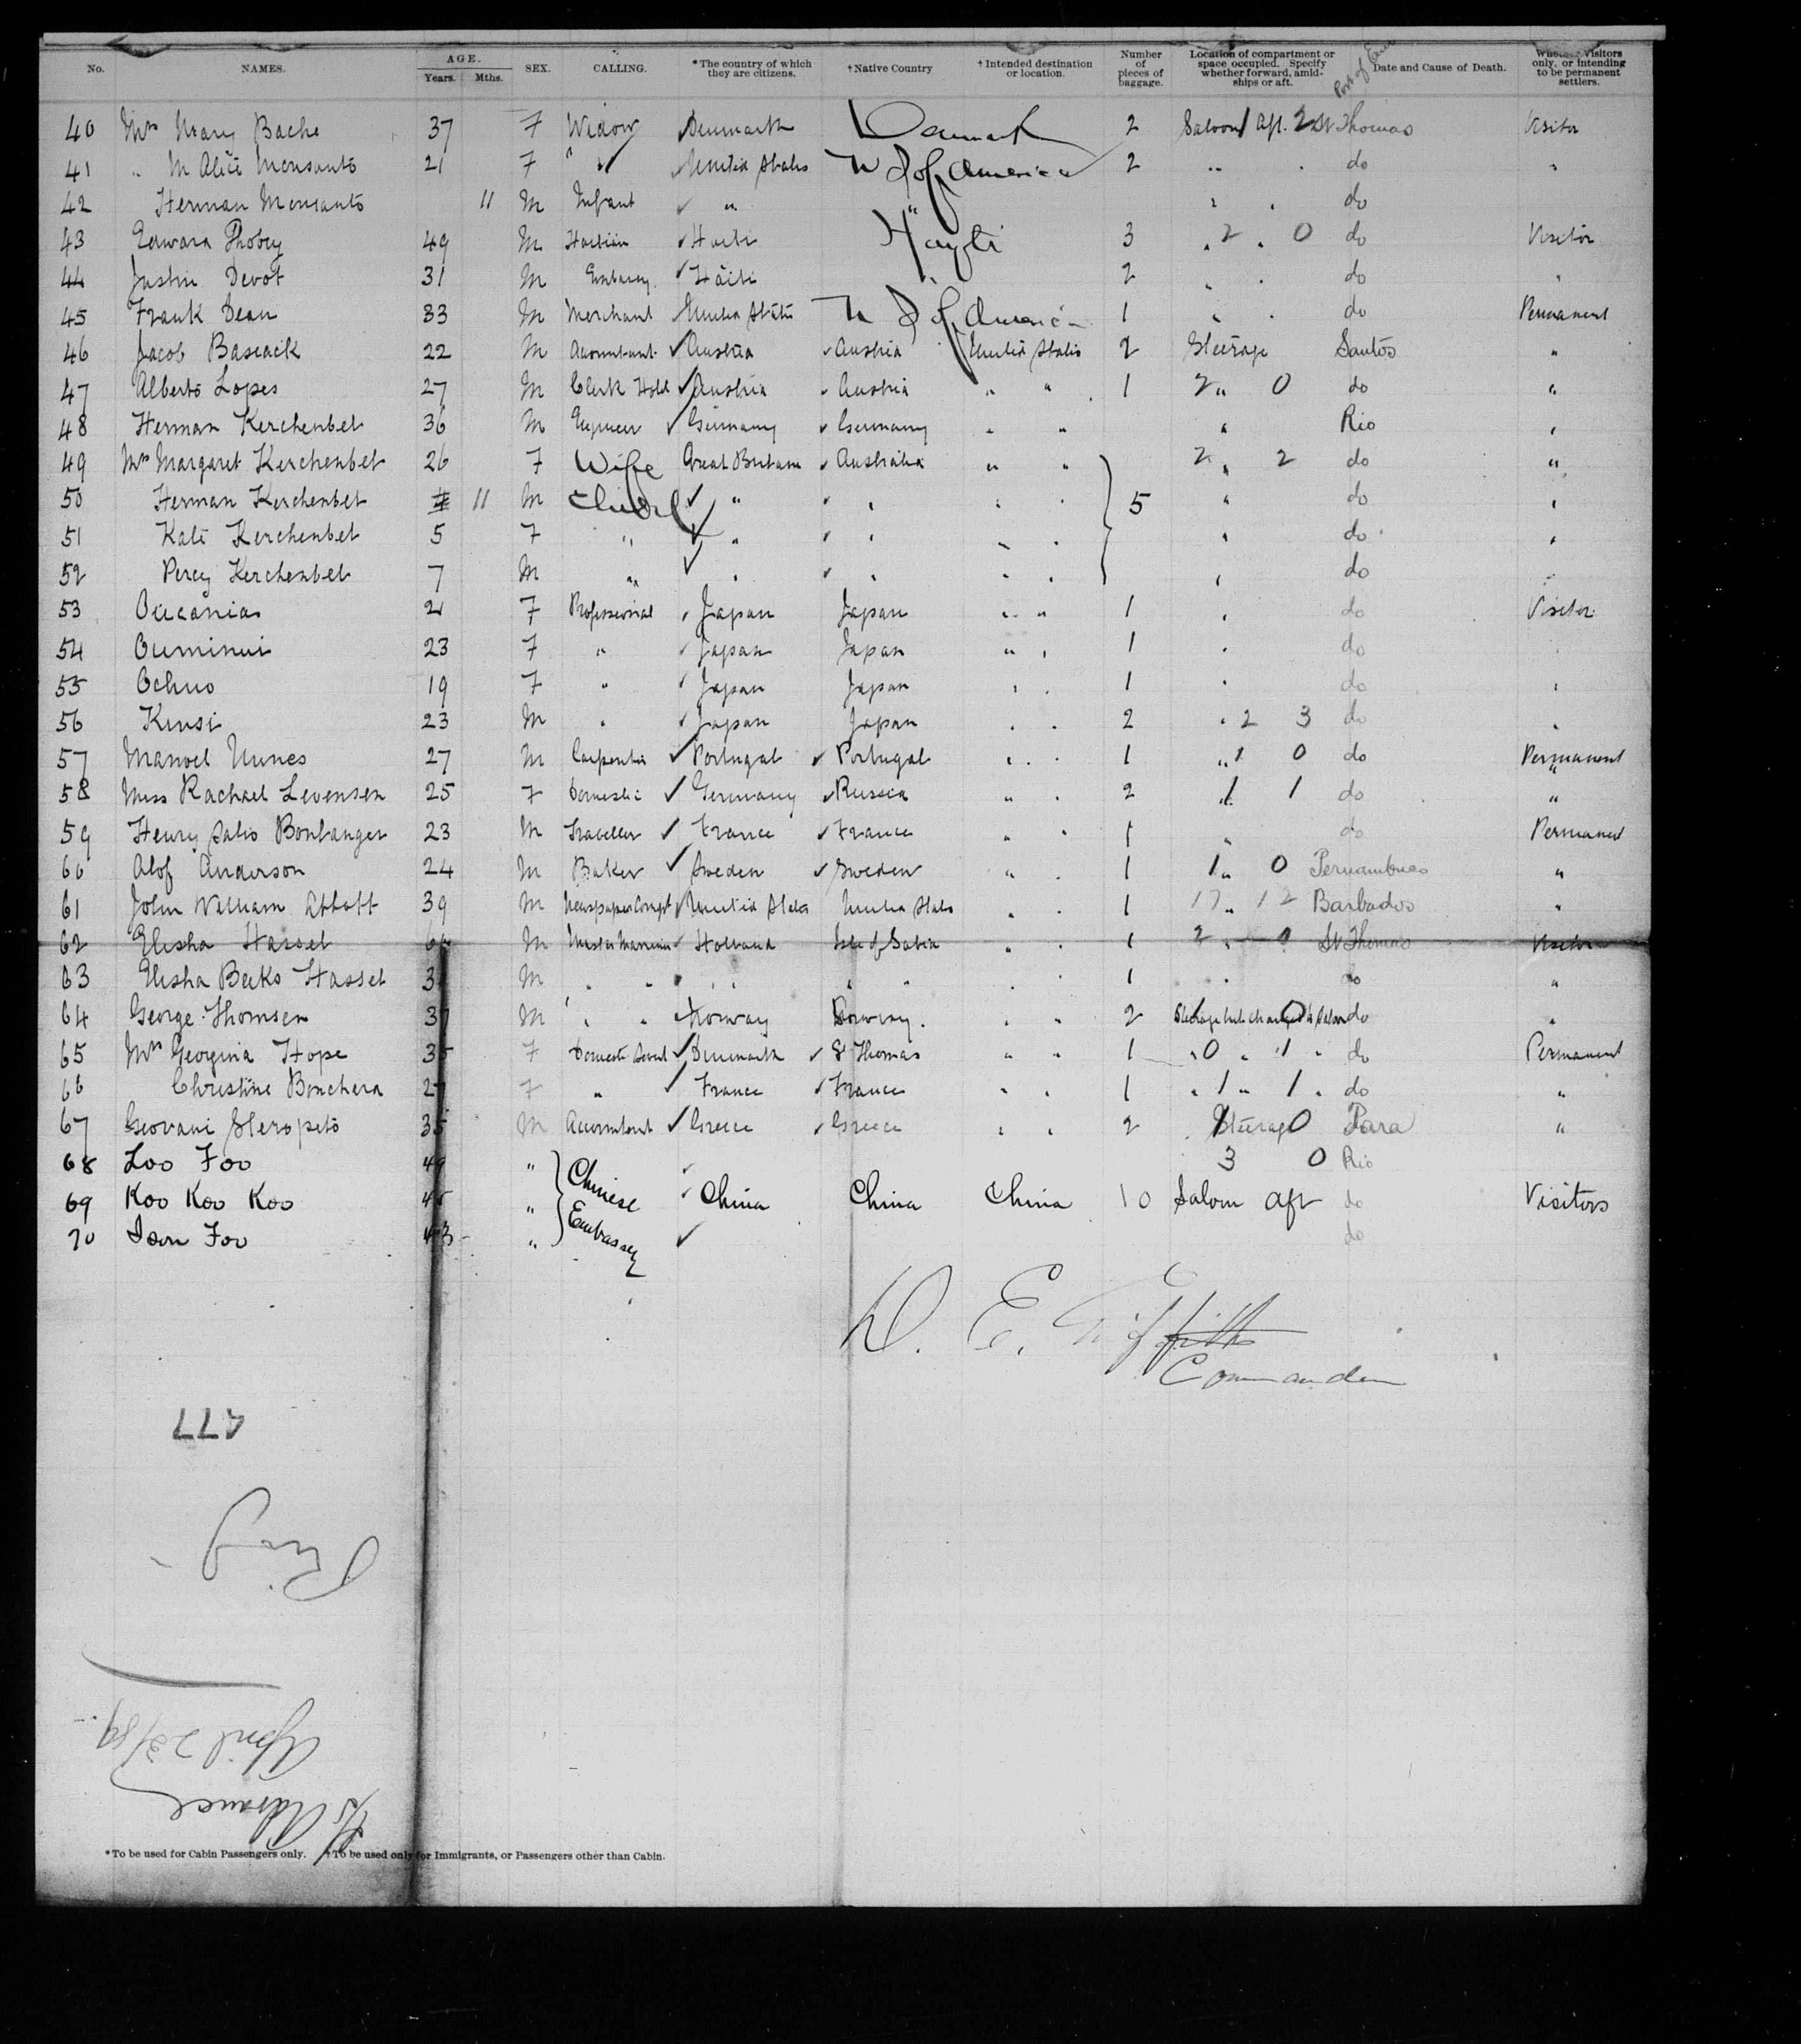 No. NAMES. AGE. Years. Mths. SEX. CALLING. *The country of which they are citizens. †Native Country †Intended destination or location. Number of pieces of baggage. Location of compartment or space occupied. Specify whether forward, amid-ships or aft. Port of Date and Cause of Death. Whether Visitors only, or intending to be permanent settlers.
40 Mrs Mary Bache 37 F Widow Denmark Denmark 2 Saloon Aft. St Thomas Visitor
41 " M Alice Monsanto 21 F " United States U S of America 2 " " do "
42 Herman Monsanto 11 M Infant " " " " do
43 Edward Thoby 49 M Haitian Haiti Hayti 3 " 2 " 0 do Visitor
44 Justin Devot 31 M Embassy Haiti " 2 " " do "
45 Frank Dean 33 M Merchant United States U S of America 1 " " do Permanent
46 Jacob Bascack 22 M Accountant Austria Austria United States 2 Steerage Santos "
47 Alberto Lopes 27 M Clerk Hotel Austria Austria " " 1 2 " 0 do "
48 Herman Kerchenbet 36 M Engineer Germany Germany " " " Rio "
49 Mrs Margaret Kerchenbet 26 F Wife Great Britain Australia " " 2 " 2 do "
50 Herman Kerchenbet 11 M Child " " " " 5 " do "
51 Kate Kerchenbet 5 F " " " " " " do "
52 Percy Kerchenbet 7 M " " " " " " do "
53 21 F Professional Japan Japan " " 1 " do Visitor
54 Ouminui 23 F " Japan Japan " " 1 " do "
55 Ochuo 19 F " Japan Japan " " 1 " do "
56 Kinsi 23 M " Japan Japan " " 2 " 2 3 do "
57 Manoel Nunes 27 M Carpenter Portugal Portugal " " 1 " 1 0 do Permanent
58 Miss Rachael Levensen 25 F Domestic Germany Russia " " 2 " 1 1 do "
59 Henry Boulanger 23 M Traveller France France " " 1 " do Permanent
60 Olof Anderson 24 M Baker Sweden Sweden " " 1 1 " 0 Pernambuco "
61 John William Abbott 39 M Newspaper Corrspt United States United States " " 1 17 " 12 Barbados "
62 Elisha Hassel 64 M Master Mariner Holland Isle of Sabia " " 1 2 " 0 St Thomas Visitor
63 Elisha Beeks Hassel M " " " " " " " " 1 " " do "
64 George Thomsen 37 M " " Norway Norway. " " 2 Steerage but changed to Saloon do "
65 Mrs Georgina Hope 35 F Domestic Servt Denmark St Thomas " " 1 " 0 " 1 " do Permanent
66 Christine Bonchera 27 F " France France " " 1 " 1 " 1 " do "
67 Geovani Steropeto 35 M Accountant Greece Greece " " 2 Steerage 0 Para "
68 Loo Foo 49 " Chinese 3 0 Rio
69 Koo Koo Koo 45 " Embassy China China China 10 Saloon Aft do Visitors
70 Ison Foo 43 " do
D. E. Griffith
Commander
477
Rio
April 23/89.
SS Advance
*To be used for Cabin Passengers only. †To be used only for Immigrants, or Passengers other than Cabin.